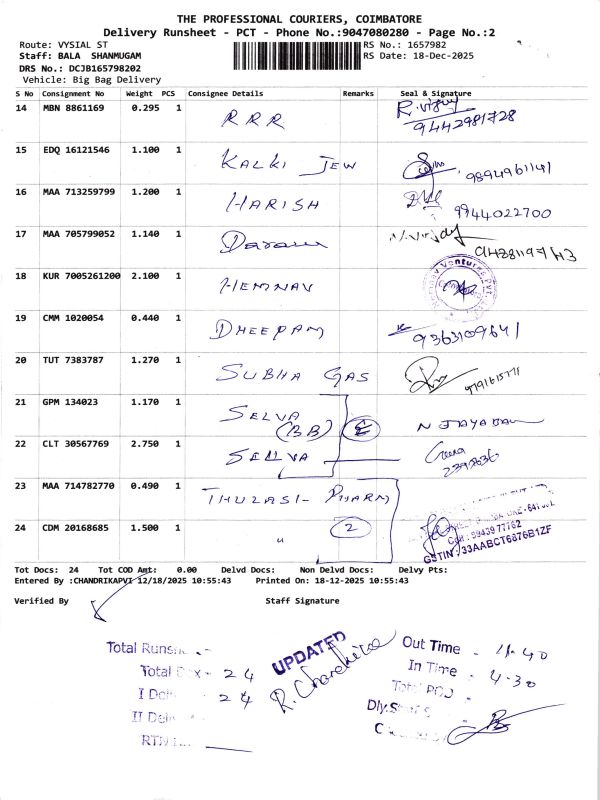 THE PROFESSIONAL COURIERS, COIMBATORE
Delivery Runsheet - PCT - Phone No.:9047080280 - Page No.:2
Route: VYSIAL ST
RS No.: 1657982
Staff: BALA SHANMUGAM
RS Date: 18-Dec-2025
DRS No.: DCJB165798202
Vehicle: Big Bag Delivery
S No Consignment No Weight PCS Consignee Details Remarks Seal & Signature
14 MBN 8861169 0.295 1 RRR
9442981728
15 EDQ 16121546 1.100 1 KALKI JEW
9894961141
16 MAA 713259799 1.200 1 HARISH
9944022700
17 MAA 705799052 1.140 1
18 KUR 7005261200 2.100 1 HEMNAV
19 CMM 1020054 0.440 1 DHEEPAM
20 TUT 7383787 1.270 1 SUBHA GAS
21 GPM 134023 1.170 1 SELVA
(BB)
22 CLT 30567769 2.750 1 SELVA
23 MAA 714782770 0.490 1 THULASI PHARM
24 CDM 20168685 1.500 1 " 2
Cell : 99439 77762
GSTIN : 33AABCT6876B1ZF
Tot Docs: 24 Tot COD Amt: 0.00 Delvd Docs: Non Delvd Docs: Delvy Pts:
Entered By :CHANDRIKAPVI 12/18/2025 10:55:43 Printed On: 18-12-2025 10:55:43
Verified By Staff Signature
Total Runsh
UPDATED
Out Time - 11.40
Total Dox - 24
In Time - 4.30
I Deliv - 24
II Deliv